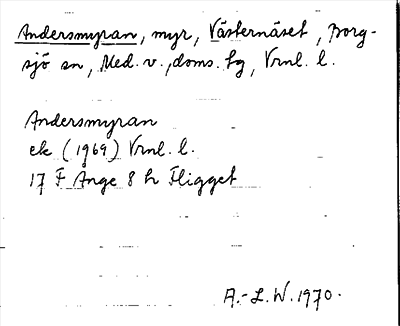 Andersmyran, myr, Västernäset, Borg-
sjö sn, Med. v., doms. lg, Vrnl. l.
Andersmyran
ek (1969) Vrnl. l.
17 F Ånge 8 h Fligget
A.-L. W. 1970.